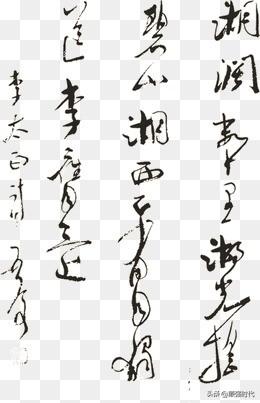 湖阔数十里湖光摇
碧山湖西正有月独
送李膺还
李太白诗
头条 @最强时代